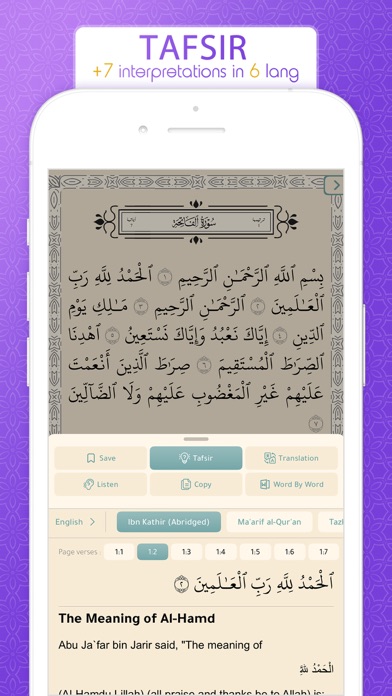 TAFSIR
+7 interpretations in 6 lang
سُورَةُ ٱلْفَاتِحَةِ
بِسْمِ ٱللَّهِ ٱلرَّحْمَـٰنِ ٱلرَّحِيمِ ١ ٱلْحَمْدُ لِلَّهِ رَبِّ
ٱلْعَـٰلَمِينَ ٢ ٱلرَّحْمَـٰنِ ٱلرَّحِيمِ ٣ مَـٰلِكِ يَوْمِ
ٱلدِّينِ ٤ إِيَّاكَ نَعْبُدُ وَإِيَّاكَ نَسْتَعِينُ ٥ ٱهْدِنَا
ٱلصِّرَٰطَ ٱلْمُسْتَقِيمَ ٦ صِرَٰطَ ٱلَّذِينَ أَنْعَمْتَ
عَلَيْهِمْ غَيْرِ ٱلْمَغْضُوبِ عَلَيْهِمْ وَلَا ٱلضَّآلِّينَ
٧
Save Tafsir Translation
Listen Copy Word By Word
English Ibn Kathir (Abridged) Ma'arif al-Qur'an
Page verses : 1:1 1:2 1:3 1:4 1:5 1:6 1:7
ٱلْحَمْدُ لِلَّهِ رَبِّ ٱلْعَـٰلَمِينَ ٢
The Meaning of Al-Hamd
Abu Ja`far bin Jarir said, "The meaning of
الْحَمْدُ للَّهِ
(Al-Hamdu Lillah) (all praise and thanks be to Allah) is: